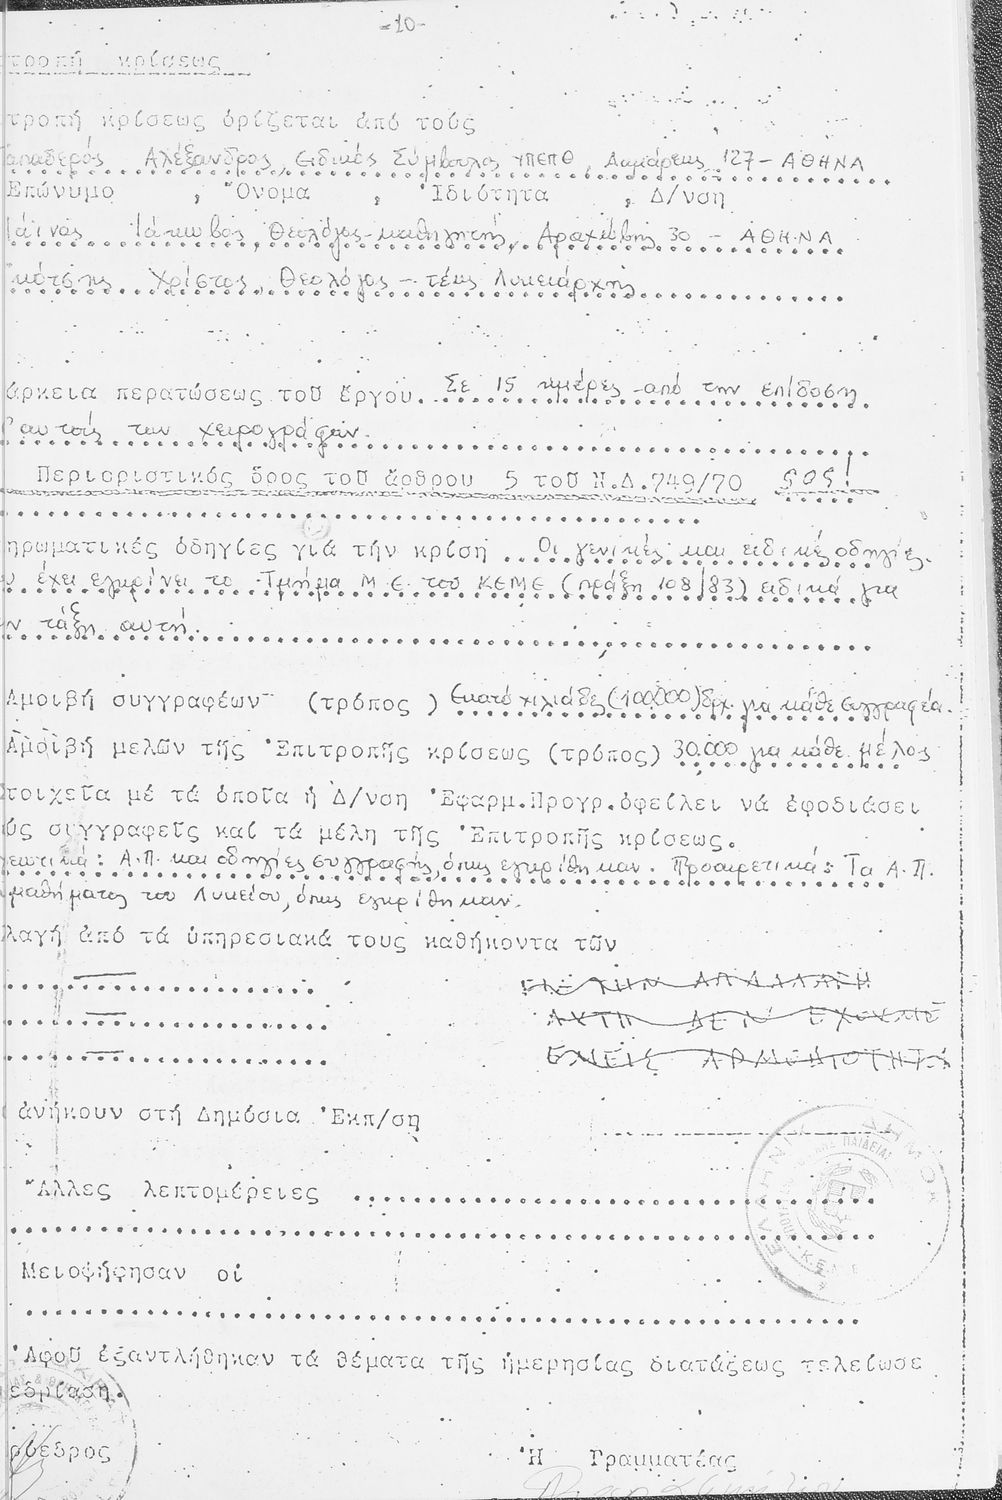 -10-
τροπή κρίσεως
τροπή κρίσεως ὁρίζεται ἀπό τούς
απαδερός Αλέξανδρος, Ειδικός Σύμβουλος ΥΠΕΠΘ, 127 - ΑΘΗΝΑ
Ἐπώνυμο , Ὄνομα , Ἰδιότητα , Δ/νση
Ιάκωβος, Θεολόγος-καθηγητής, Αραχώβης 30 - ΑΘΗΝΑ
Χρίστος, Θεολόγος - τέως Λυκειάρχης
άρκεια περατώσεως τοῦ ἔργου. Σε 15 ημέρες από την επίδοση
αυτούς των χειρογράφων.
Περιοριστικός ὅρος τοῦ ἄρθρου 5 τοῦ Ν.Δ.749/70 SOS!
ηρωματικές ὁδηγίες γιά τήν κρίση .. Οι γενικές και ειδικές οδηγίες
υ έχει εγκρίνει το Τμήμα Μ.Ε. του ΚΕΜΕ (πράξη 108/83) ειδικά για
ν τάξη αυτή.
Ἀμοιβή συγγραφέων (τρόπος ) Εκατό χιλιάδες (100.000) δρχ. για κάθε συγγραφέα.
Ἀμοιβή μελῶν τῆς Ἐπιτροπῆς κρίσεως (τρόπος) 30.000 για κάθε μέλος
τοιχεῖα μέ τά ὁποῖα ἡ Δ/νση Ἐφαρμ.Προγρ.ὀφείλει νά ἐφοδιάσει
ύς συγγραφεῖς καί τά μέλη τῆς Ἐπιτροπῆς κρίσεως.
: Α.Π. και οδηγίες συγγραφής, όπως εγκρίθηκαν. Προαιρετικά: Τα Α.Π.
μαθήματος του Λυκείου, όπως εγκρίθηκαν.
λαγή ἀπό τά ὑπηρεσιακά τους καθήκοντα τῶν
ΑΠΑΛΛΑΓΗ
ΑΥΤΗ ΔΕΝ ΕΧΟΥΜΕ
ΕΜΕΙΣ ΑΡΜΟΔΙΟΤΗΤΑ
ἀνήκουν στή Δημόσια Ἐκπ/ση
Ἄλλες λεπτομέρειες
Μειοψήφησαν οἱ
Ἀφοῦ ἐξαντλήθηκαν τά θέματα τῆς ἡμερησίας διατάξεως τελείωσε
εδρίαση.
ρόεδρος Ἡ Γραμματέας